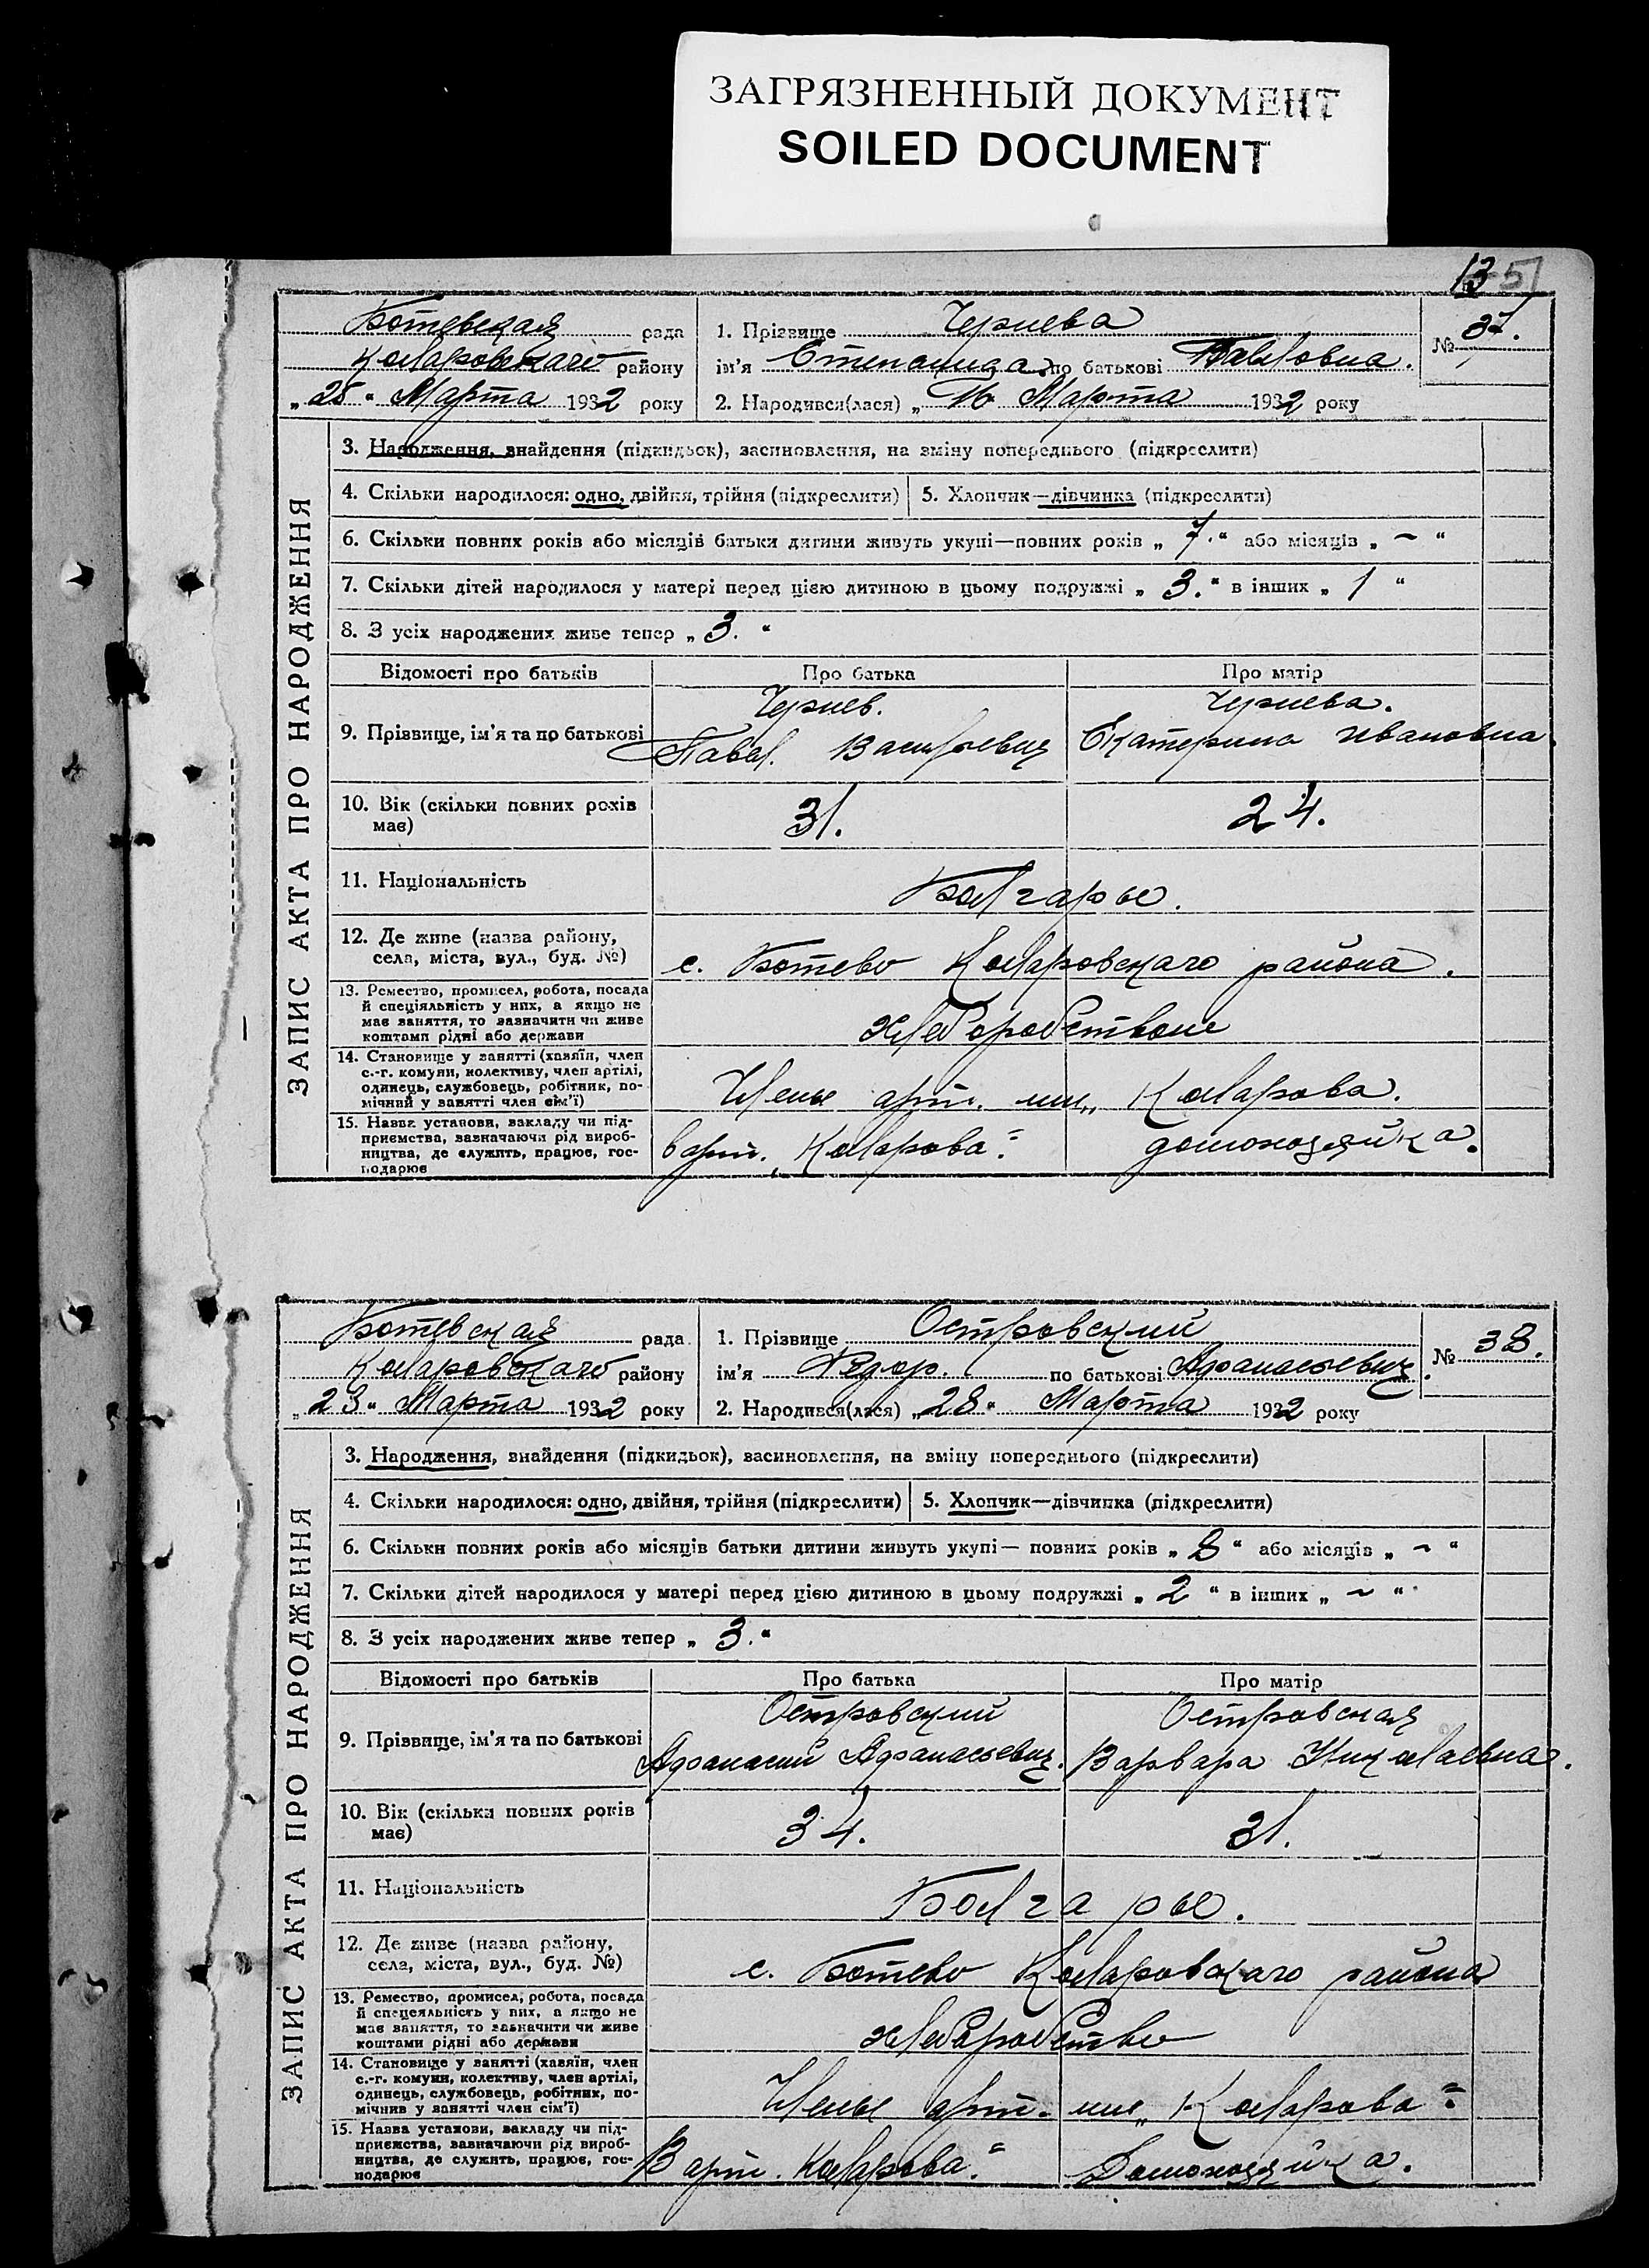 ЗАГРЯЗНЕННЫЙ ДОКУМЕНТ
SOILED DOCUMENT
13 51
Ботевская рада
Коларовскаго району
„25“ Марта 1932 року
1. Прізвище Чернева
ім'я Степанида по батькові Павловна.
2. Народився(лася) „16 Марта 1932 року
№ 37.
ЗАПИС АКТА ПРО НАРОДЖЕННЯ
3. Народження, знайдення (підкидьок), засиновлення, на зміну попереднього (підкреслити)
4. Скільки народилося: одно, двійня, трійня (підкреслити) 5. Хлопчик—дівчинка (підкреслити)
6. Скільки повних років або місяців батьки дитини живуть укупі—повних років „7.“ або місяців „~“
7. Скільки дітей народилося у матері перед цією дитиною в цьому подружжі „3.“ в інших „1“
8. З усіх народжених живе тепер „3.“
Відомості про батьків Про батька Про матір
9. Прізвище, ім'я та по батькові
Чернев. Чернева.
Павел. Васильевич Екатерина Ивановна.
10. Вік (скільки повних років
має)
31. 24.
11. Національність Болгары.
12. Де живе (назва району,
села, міста, вул., буд. №)
с. Ботево Коларовскаго района.
13. Ремество, промисел, робота, посада
й спеціяльність у них, а якщо не
має заняття, то зазначити чи живе
коштами рідні або держави
14. Становище у занятті (хазяїн, член
с.-г. комуни, колективу, член артілі,
одинець, службовець, робітник, по-
мічний у занятті член сім'ї)
Члены арт. им„ Коларова.
15. Назва установи, закладу чи під-
приємства, зазначаючи рід вироб-
ництва, де служить, працює, гос-
подарює
в арт. „Коларова“. домохозяйка.
Ботевская рада
Коларовскаго району
„23“ Марта 1932 року
1. Прізвище Островский
ім'я Федор. по батькові Афанасьевич.
2. Народився(лася) „28“ Марта 1932 року
№ 38.
ЗАПИС АКТА ПРО НАРОДЖЕННЯ
3. Народження, знайдення (підкидьок), засиновлення, на зміну попереднього (підкреслити)
4. Скільки народилося: одно, двійня, трійня (підкреслити) 5. Хлопчик—дівчинка (підкреслити)
6. Скільки повних років або місяців батьки дитини живуть укупі— повних років „8“ або місяців „~“
7. Скільки дітей народилося у матері перед цією дитиною в цьому подружжі „2“ в інших „~“
8. З усіх народжених живе тепер „3.“
Відомості про батьків Про батька Про матір
9. Прізвище, ім'я та по батькові
Островский Островская
Афанасий Афанасьевич. Варвара Николаевна.
10. Вік (скільки повних років
має)
34. 31.
11. Національність Болгары.
12. Де живе (назва району,
села, міста, вул., буд. №)
с. Ботево Коларовскаго района
13. Ремество, промисел, робота, посада
й спецеяльність у них, а якщо не
має заняття, то зазначити чи живе
коштами рідні або держави
14. Становище у занятті (хазяїн, член
с.-г. комуни, колективу, член артілі,
одинець, службовець, робітник, по-
мічнив у занятті член сім'ї)
Члены арт. им„ Коларова“.
15. Назва установи, закладу чи під-
приємства, зазначаючи рід вироб-
ництва, де служить, працює, гос-
подарює
В арт. Коларова“. Домохозяйка.